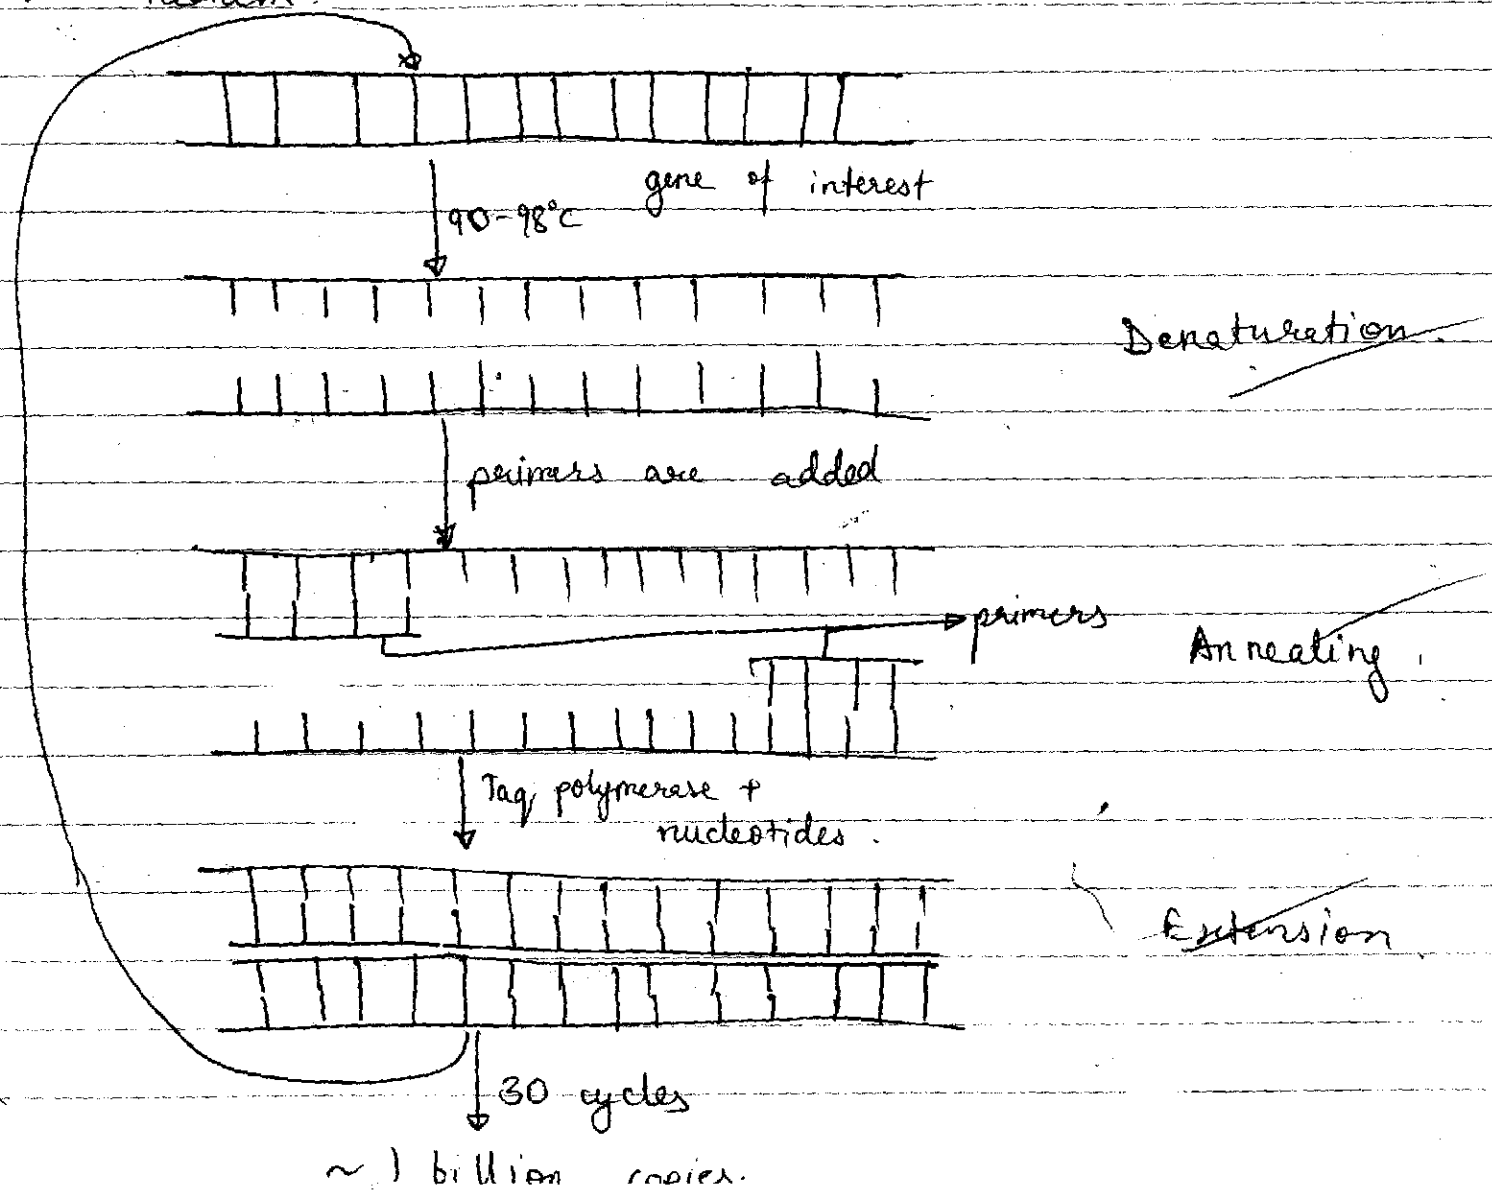 gene of interest
90-98°C
Denaturation.
primers are added
primers
Annealing.
Taq polymerase +
nucleotides.
Extension
30 cycles
~ 1 billion copies.